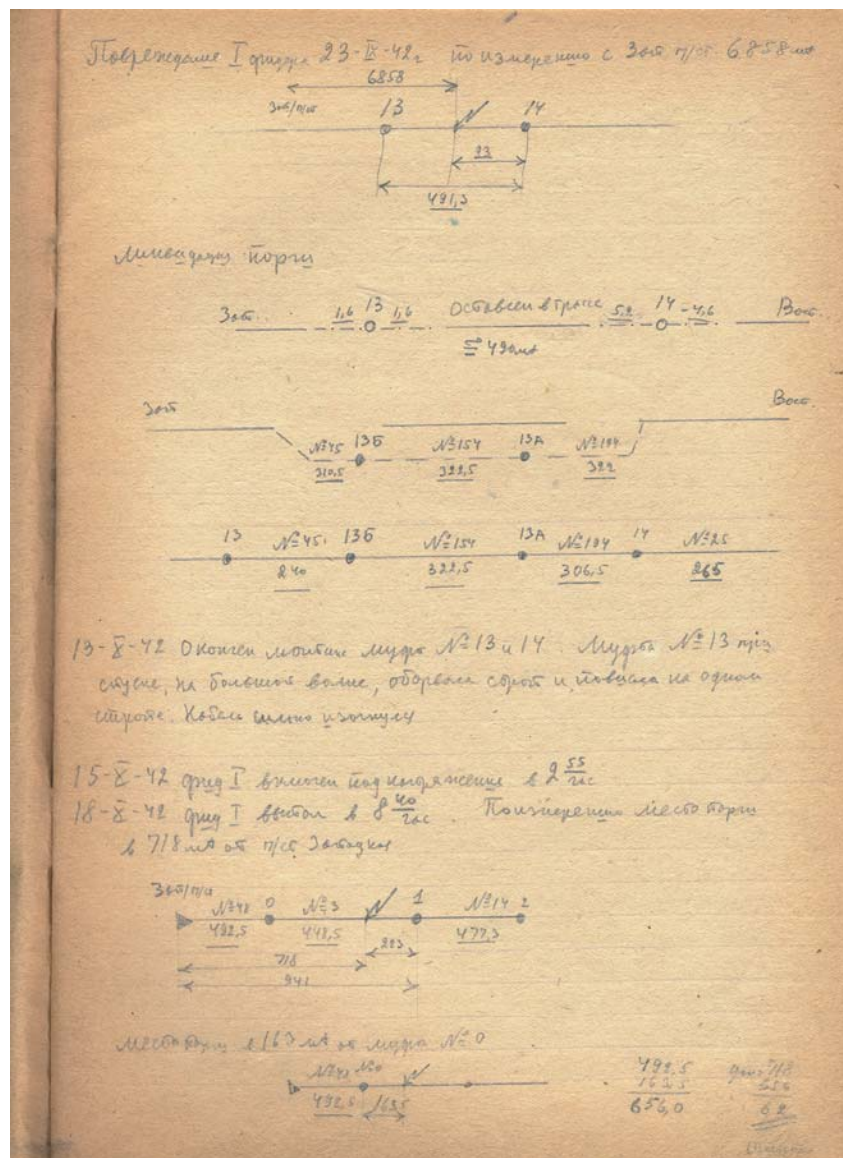 Повреждение I фидера 23-IX-42г по измерению с Зап п/ст 6858 мт
6858
Зап/п/ст 13 14
23
491,3
Ликвидация порчи
Зап. 1,6 13 1,6 Оставлен в трассе 5,2 14 -4,6 Вост.
490мт
Зап Вост.
№45 13Б №154 13А №194
310,5 322,5 322
13 №45 13Б №154 13А №194 14 №25
240 322,5 306,5 265
13-X-42 Окончен монтаж муфт №13 и 14. Муфта №13 при
спуске, на большой волне, оборвала строп и повисла на одном
стропе. Кабель сильно изогнулся
15-X-42 фид I включен под напряжение в 2 55 час
18-X-42 фид I выпал в 8 40 час. По измерению место порчи
в 718 мт от п/ст Западная
Зап/п/ст
№48 0 №3 1 №14 2
492,5 448,5 477,3
223
718
941
Место порчи в 163 мт от муфты №0
№48 №0
492,5 163,5
492,5 718
163,5 656
656,0 62